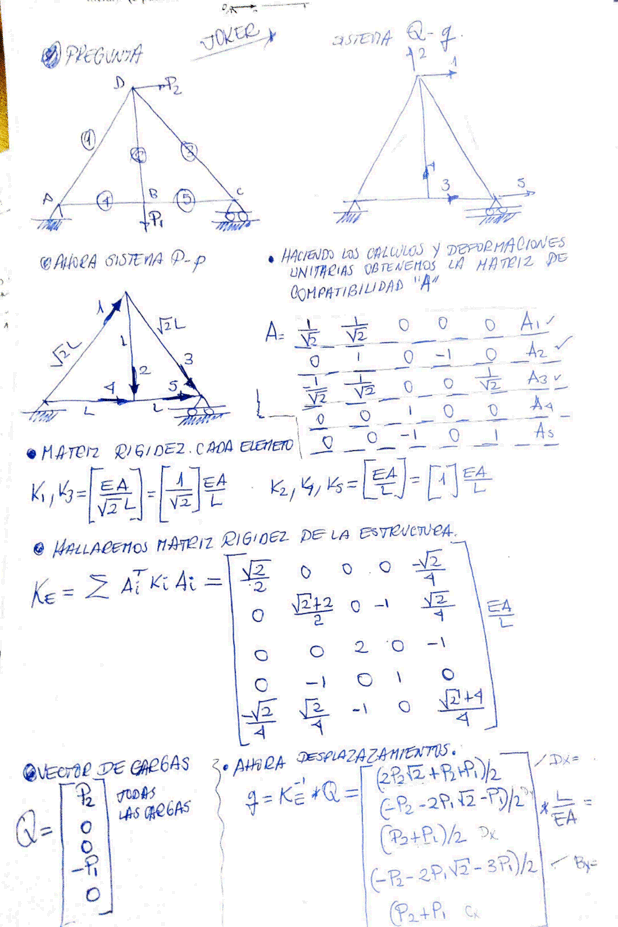 PREGUNTA
JOKER
SISTEMA Q-q.
D P2
1 2 3 4 5
A B C
P1
2 1
4
3 5
AHORA SISTEMA P-p
1 √2L √2L
L 2 3
4 5
L L
• HACIENDO LOS CALCULOS Y DEFORMACIONES
UNITARIAS OBTENEMOS LA MATRIZ DE
COMPATIBILIDAD "A"
A= 1/√2 1/√2 0 0 0 A1 ✓
0 1 0 -1 0 A2 ✓
-1/√2 1/√2 0 0 1/√2 A3 ✓
0 0 1 0 0 A4
0 0 -1 0 1 A5
• MATRIZ RIGIDEZ CADA ELEMETO
K1, K3 = [EA/√2L] = [1/√2] EA/L . K2, K4, K5 = [EA/L] = [1] EA/L
• HALLAREMOS MATRIZ RIGIDEZ DE LA ESTRUCTURA.
KE = Σ Ai^T Ki Ai = [√2/2 0 0 0 -√2/4
0 √2+2/2 0 -1 √2/4
0 0 2 0 -1
0 -1 0 1 0
-√2/4 √2/4 -1 0 √2+4/4] EA/L
• VECTOR DE CARGAS
Q = [P2
0
0
-P1
0]
TODAS
LAS CARGAS
• AHORA DESPLAZAZAMIENTOS.
q = KE^-1 * Q = [(2P2√2+P2+P1)/2 / Dx=
(-P2-2P1√2-P1)/2
(P2+P1)/2 Dx
(-P2-2P1√2-3P1)/2 By=
(P2+P1 Cx] * L/EA =